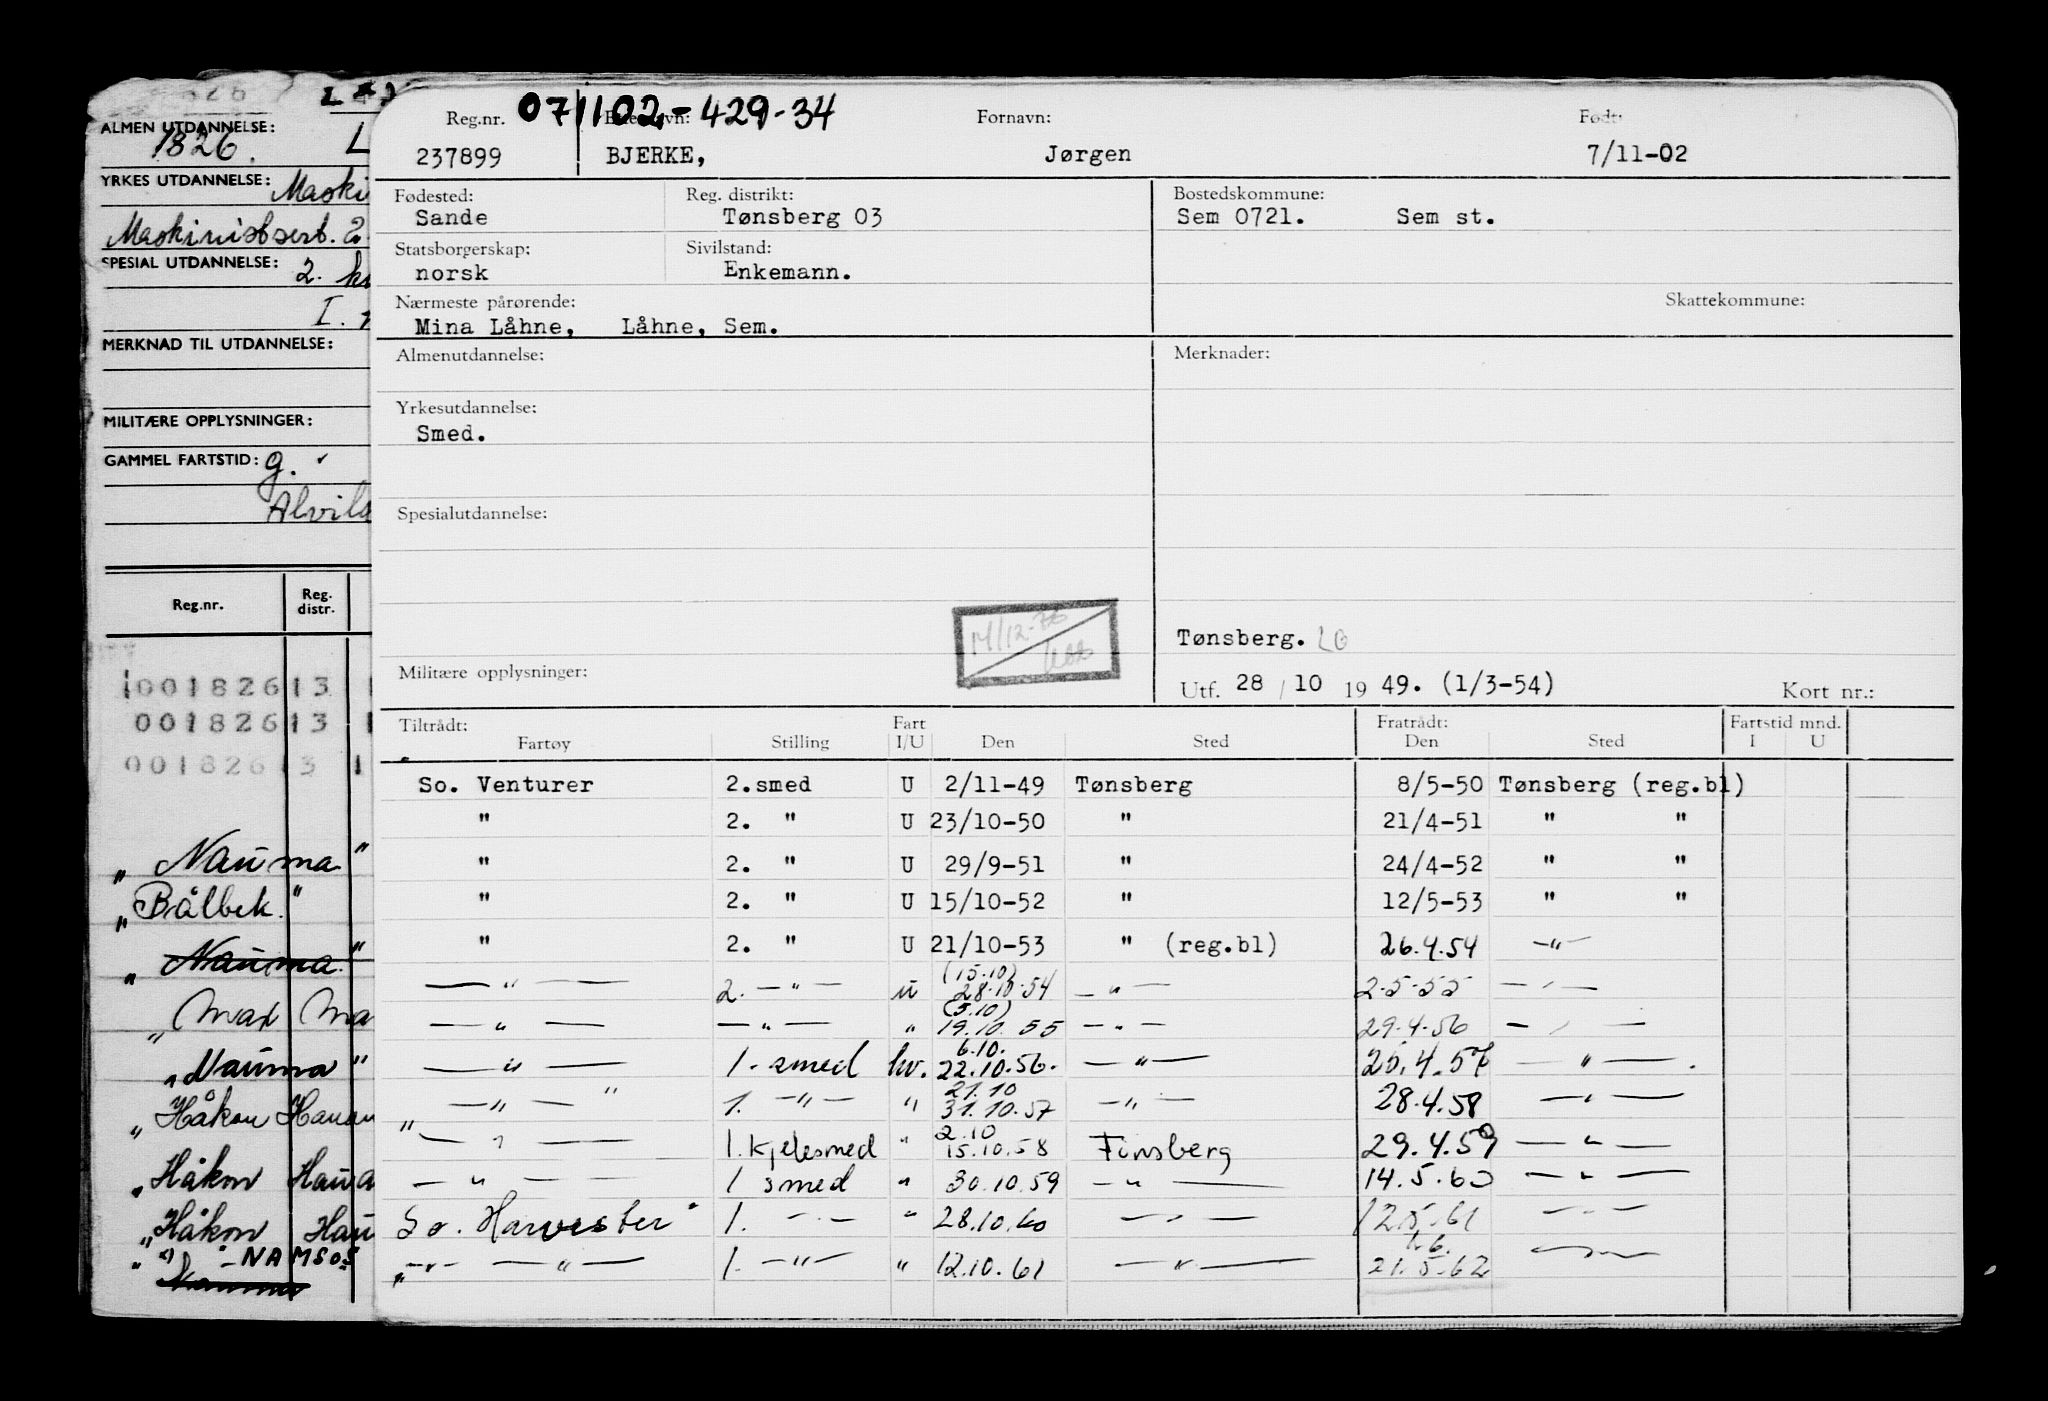 ALMEN UTDANNELSE:
1826.
YRKES UTDANNELSE:
Maskinistsert. 2.
SPESIAL UTDANNELSE: 2.
I.
MERKNAD TIL UTDANNELSE:
MILITÆRE OPPLYSNINGER:
GAMMEL FARTSTID: g.
Reg.nr. Reg. distr.
001826 13
001826 13
001826 13
„ Nauma "
„ Bålbek. "
„ Nauma. "
„ Nauma "
„ Håkon
„ Håkon
„ Håkon
„ " - NAMSOS
071102-429-34
Reg.nr. Fornavn: Født:
237899 BJERKE, Jørgen 7/11-02
Fødested: Reg. distrikt: Bostedskommune:
Sande Tønsberg 03 Sem 0721. Sem st.
Statsborgerskap: Sivilstand:
norsk Enkemann.
Nærmeste pårørende: Skattekommune:
Mina Låhne, Låhne, Sem.
Almenutdannelse: Merknader:
Yrkesutdannelse:
Smed.
Spesialutdannelse:
Tønsberg. LG
Militære opplysninger:
Utf. 28 / 10 19 49. (1/3-54) Kort nr.:
Tiltrådt: Fart Fratrådt: Fartstid mnd.
Fartøy Stilling I/U Den Sted Den Sted I U
So. Venturer 2.smed U 2/11-49 Tønsberg 8/5-50 Tønsberg (reg.bl)
" 2. " U 23/10-50 " 21/4-51 " "
" 2. " U 29/9-51 " 24/4-52 " "
" 2. " U 15/10-52 " 12/5-53 " "
" 2. " U 21/10-53 " (reg.bl) 26.4.54 — " —
— " — 2. — " — u (15.10) 28.10.54 — " — 2-5-55 — " —
— " — — " — " (5.10) 19.10.55 — " — 29-4-56 — " —
— " — 1. smed hv. 6.10. 22.10.56. — " — 4.57 — " —
— " — 1. — " — " 21.10 31.10.57 — " — 28.4.58 — " —
— " — 1. kjelesmed " 2.10 15.10.58 Tønsberg 29.4.59 — " —
— " — 1 smed " 30.10.59 — " — 14.5.60 — " —
So. Harvester 1. — " — " 28.10.60 — " — 12.5.61 — " —
— " — 1. — " — " 12.10.61 — " — 21.5.62 — " —